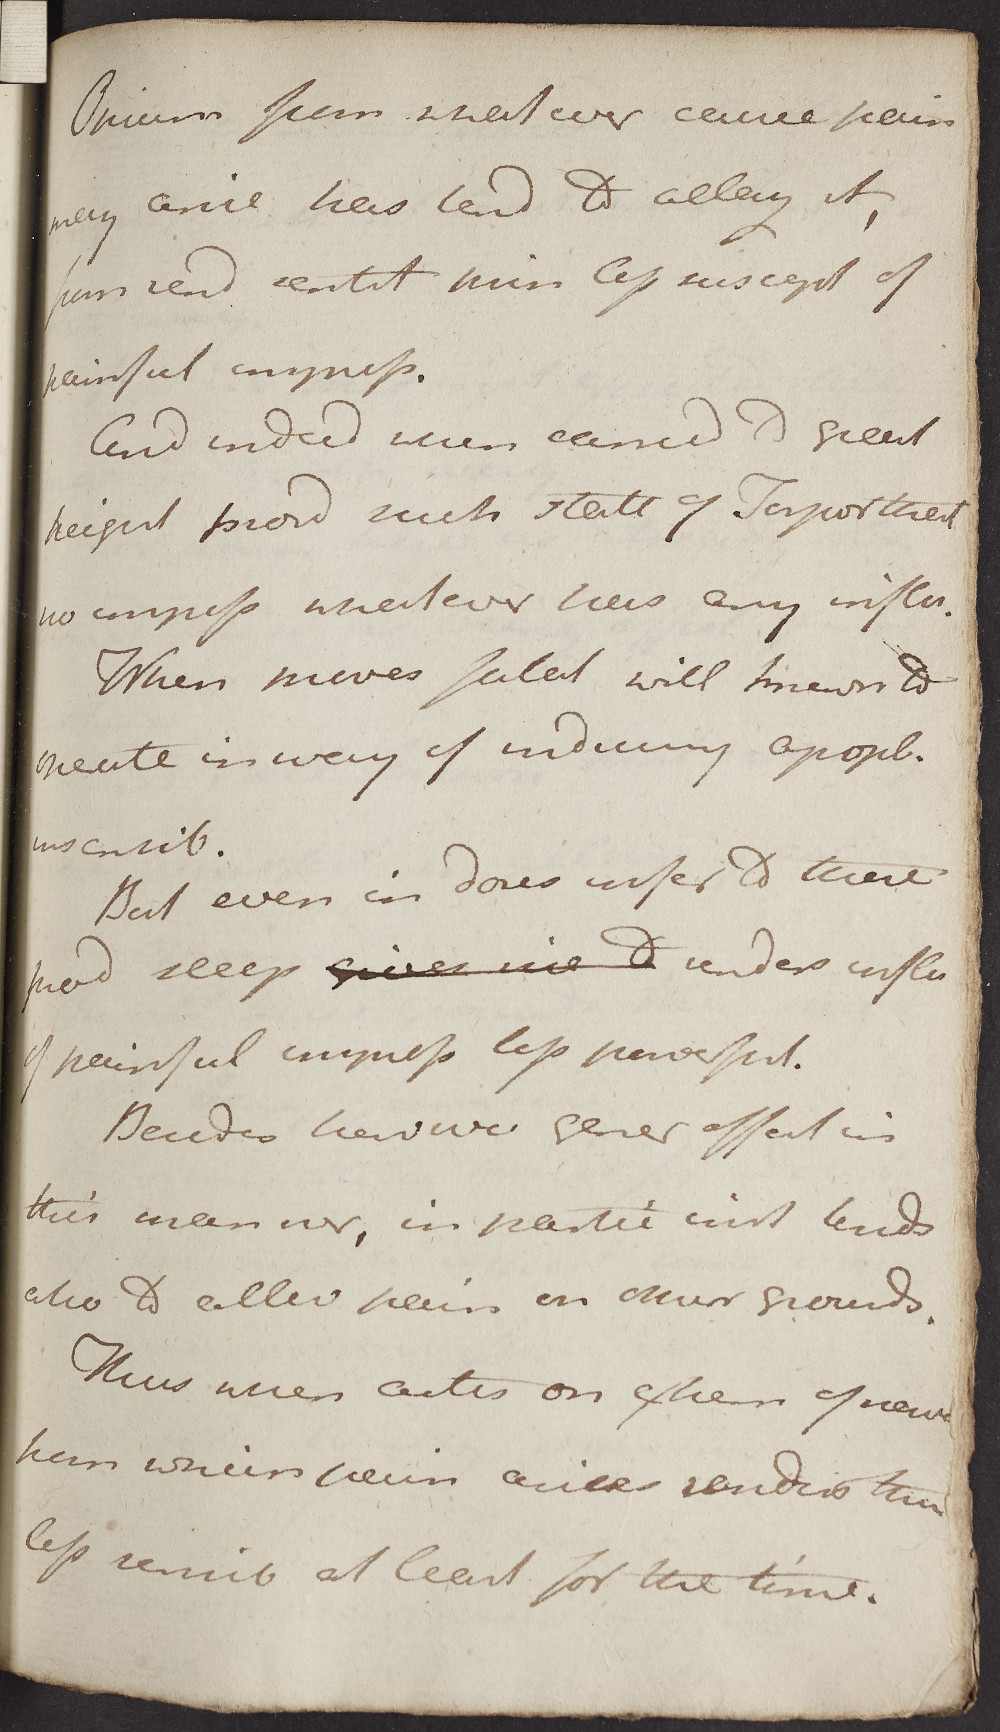 Opium from whatever cause pain
may arise has tend to allay it,
from rend sentit min less suscept of
painful impress.
And indeed when carried to great
height prod such state of Torpor that
no impress whatever has any influ.
When proves fatal will known to
operate in way of inducing apopl.
insensib.
But even in doses infer to these
prod sleep gives rise to renders influ
of painful impress less powerful.
Besides however gener effect in
this manner, in partic inst tends
also to allev pain on other grounds.
Thus when acts on extrem of nerve
from which pain arises renders them
less sensib at least for the time.